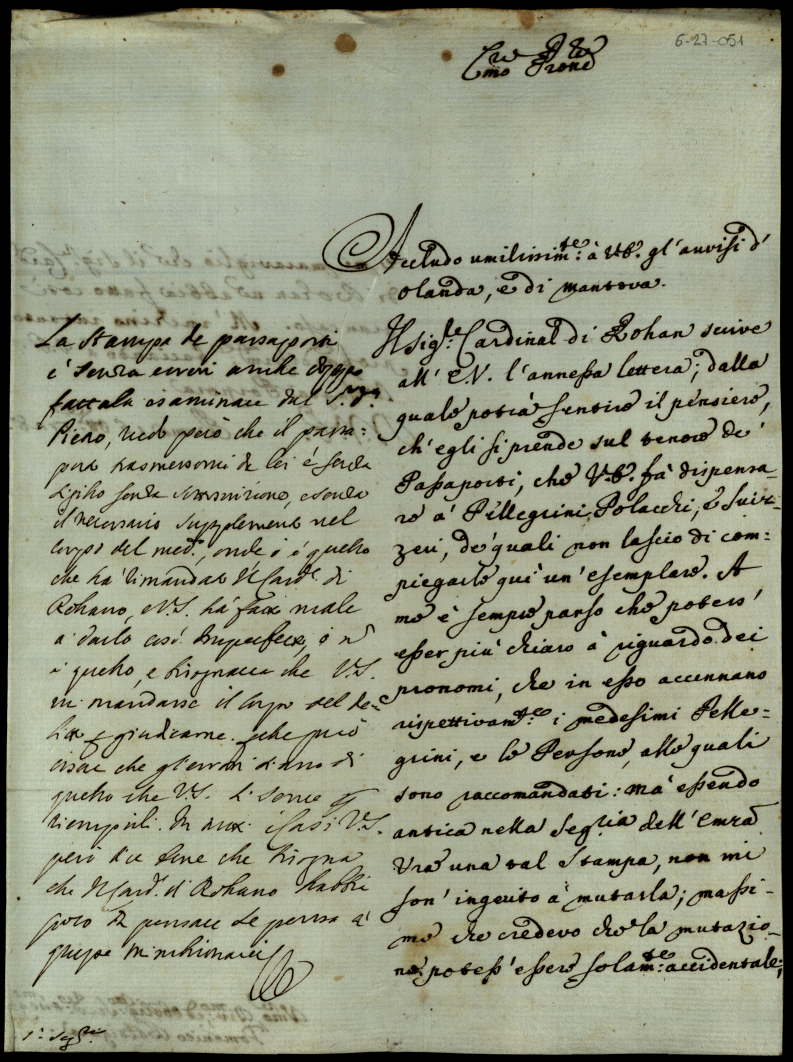 6-27-051
Em̃o Prone
Accludo umilissim:te à VE. gl'auvisi d'
olanda, e di Mantova.
Il sig.re Cardinal di Rohan scrive
all' E.V. l'annessa lettera; dalla
quale potrà sentire il pensiere,
ch'egli si prende sul tenore de'
Passaporti, che VE. fà dispensa-
re a' Pellegrini Polacchi, e Suiz-
zeri, de' quali non lascio di com-
piegarle quì un' esemplare. A
me è sempre parso che potess'
esser più chiaro à riguardo dei
pronomi, che in esso accennano
rispettivam:te i medesimi Pelle-
grini, e le Persone, alle quali
sono raccomandati: mà essendo
antica nella Seg.ria dell' Emza
Vra una tal Stampa, non mi
son' ingerito à mutarla; massi-
me che credevo che la mutazio-
ne potess' essere solam:te accidentale;
La stampa de passaporti
è senza errori anche doppo
fattala esaminare dal
Piero, vedo però che il passa-
porto trasmessomi da lei è senza
senza
il necessario supplemento nel
corpo del med.o, onde ò è quello
che hà rimandato il Card. di
Rohano, e V.S. hà fatto male
a darlo così imperfetto, ò nõ
è quello, e bisognava che V.S.
mi mandasse il corpo del de-
litto p giudicarne. che può
essere che gl'errori siano di
quello che V.S. si serve p
riempirli. V.S.
però dica bene che bisogna
che il Card. di Rohano habbi
poco da pensare se pensa a'
queste minchionarie